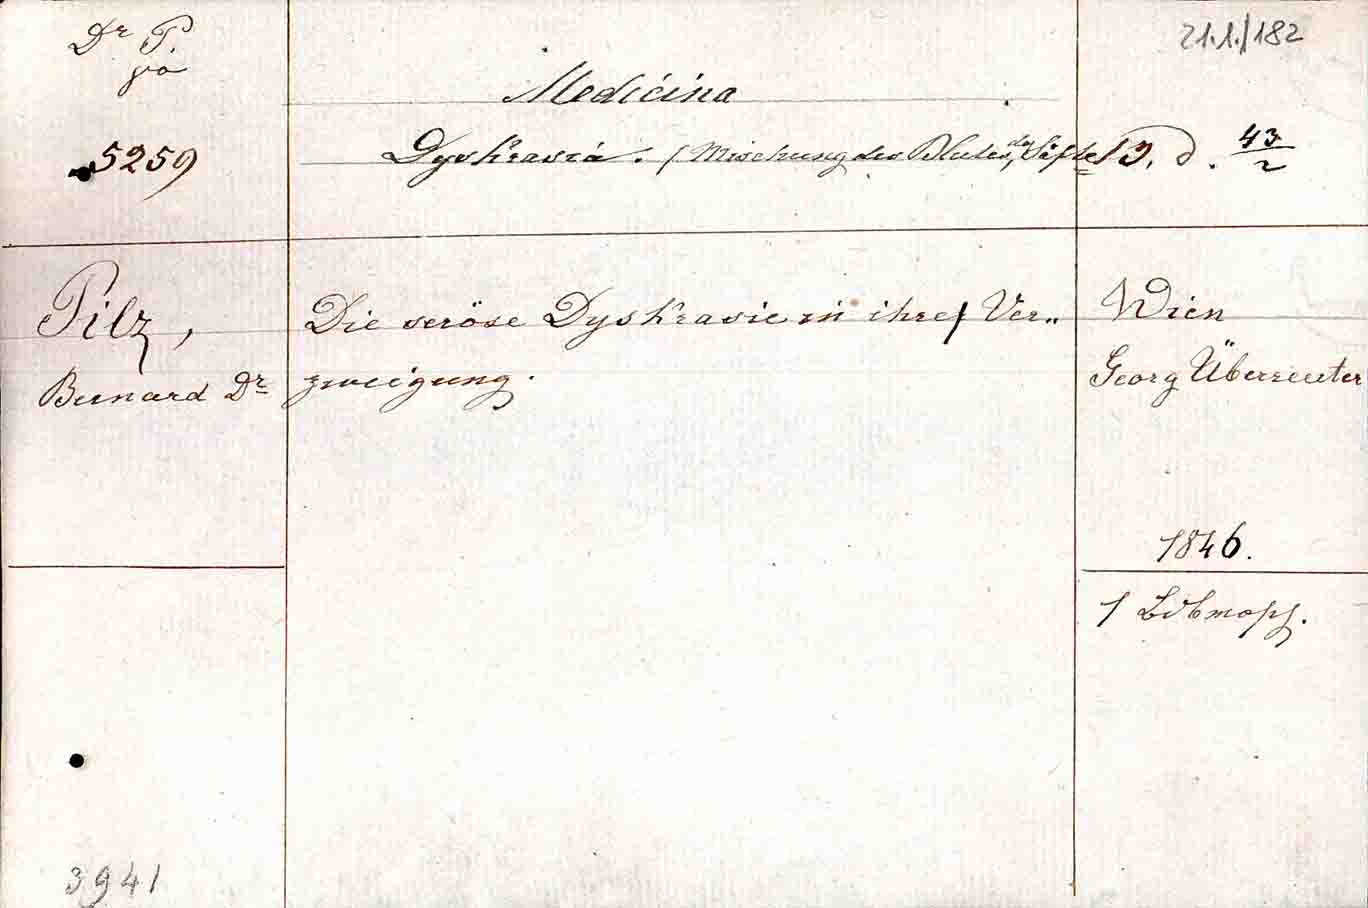 Dr P.
21.1./182
Medicina
5259
Dyskrasia. (Mischung des Blutes, der Säfte) 9. d. 43/2
Pilz,
Die seröse Dyskrasie in ihrer Ver-
Wien
Bernard Dr
zweigung.
Georg Überreuter
1846.
1
3941